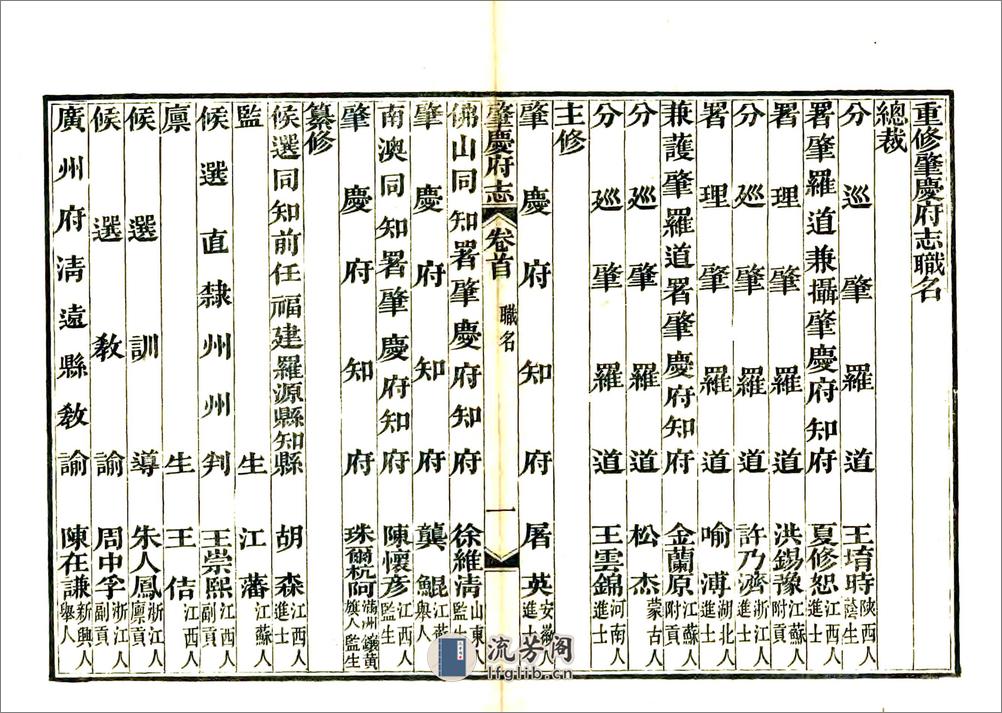 重修肇慶府志職名
總裁
分巡肇羅道 王堉時 陝西人蔭生
署肇羅道兼攝肇慶府知府 夏修恕 江西人進士
署理肇羅道 洪錫豫 江蘇人附貢
分廵肇羅道 許乃濟 浙江人進士
署理肇羅道 喻溥 湖北人進士
兼護肇羅道署肇慶府知府 金蘭原 江蘇人附貢
分廵肇羅道 松杰 蒙古人
分廵肇羅道 王雲錦 河南人進士
主修
肇慶府知府 屠英 安徽人進士
肇慶府志 卷首 職名 一
佛山同知署肇慶府知府 徐維清 山東人監生
肇慶府知府 龔鯤 江蘇人舉人
南澳同知署肇慶府知府 陳懷彥 江西人監生
肇慶府知府 珠爾杭阿 滿洲鑲黃旗人監生
纂修
候選同知前任福建羅源縣知縣 胡森 江西人進士
監生 江藩 江蘇人
候選直隸州州判 王崇熙 江西人副貢
廪生 王佶 江西人
候選訓導 朱人鳳 浙江人廪貢
候選教諭 周中孚 浙江人副貢
廣州府清遠縣教諭 陳在謙 新興人舉人
流芳阁
lfglib.cn